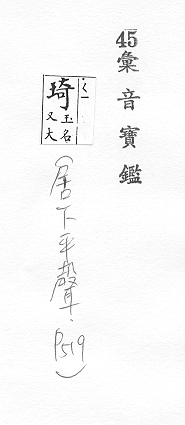 45 彙音寶鑑
琦 玉名又大
(居下平聲．P519)